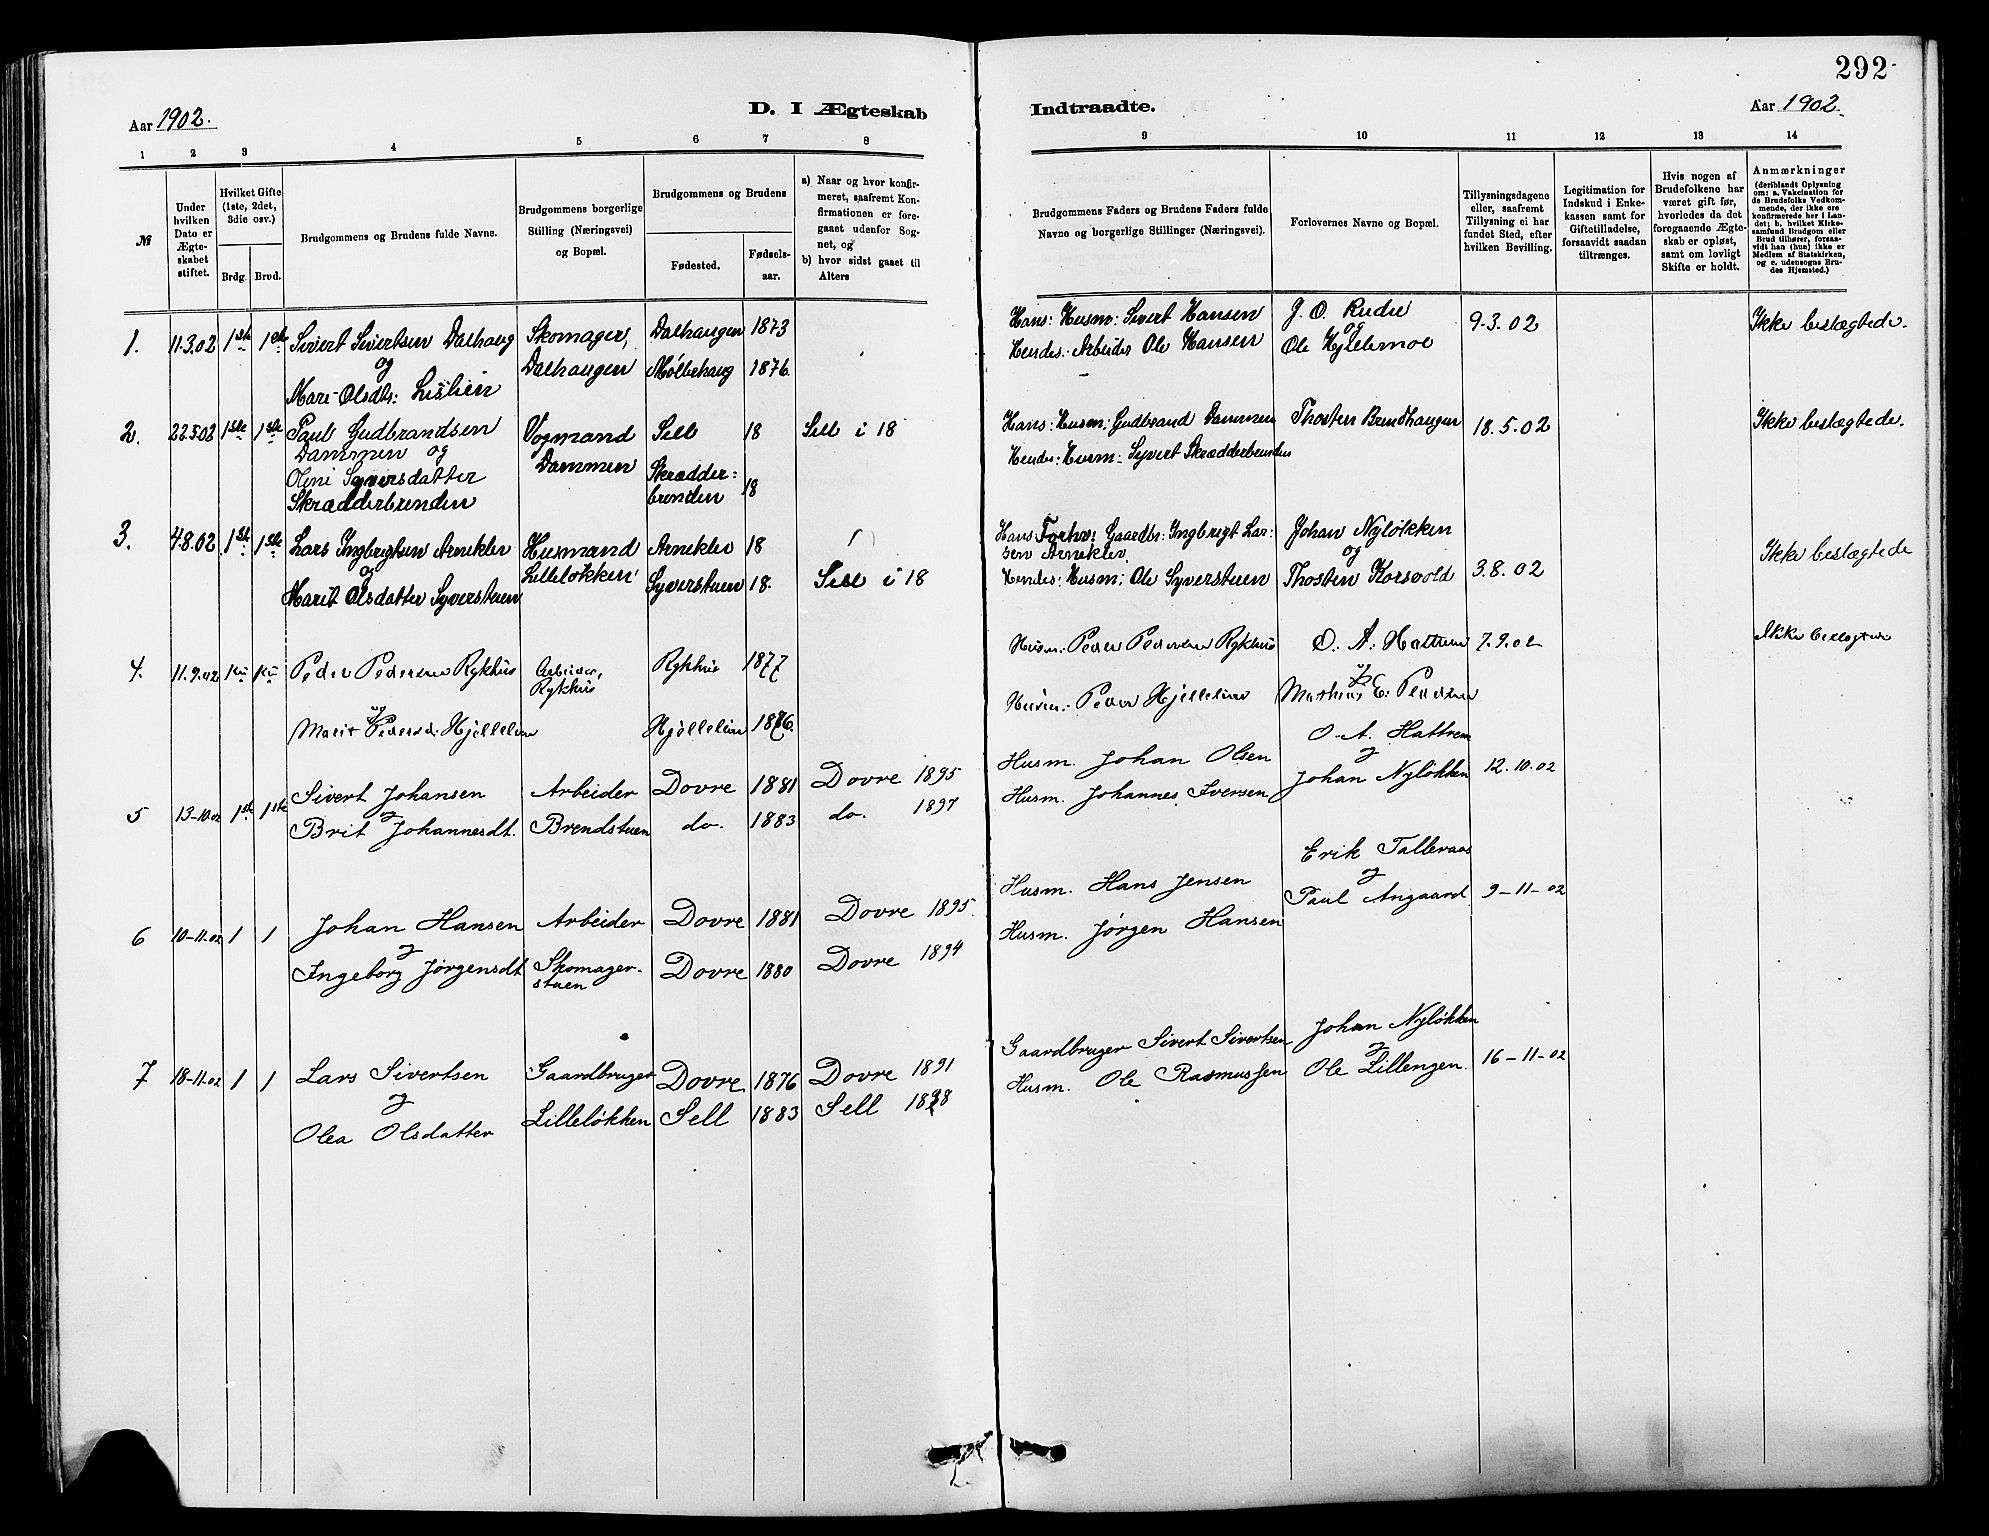 292
Aar 1902.
D. I Ægteskab
Indtraadte.
Aar 1902.
1 2 3 4 5 6 7 8
9 10 11 12 13 14
№
Under hvilken Dato er Ægteskabet stiftet.
Hvilket Gifte (1ste, 2det, 3die osv.)
Brdg. Brud.
Brudgommens og Brudens fulde Navne.
Brudgommens borgerlige Stilling (Næringsvei) og Bopæl.
Brudgommens og Brudens
Fødested.
Fødselsaar.
a) Naar og hvor konfirmeret, saafremt Konfirmationen er foregaaet udenfor Sognet, og
b) hvor sidst gaaet til Alters
Brudgommens Faders og Brudens Faders fulde Navne og borgerlige Stillinger (Næringsvei).
Forlovernes Navne og Bopæl.
Tillysningsdagene eller, saafremt Tillysning ei har fundet Sted, efter hvilken Bevilling.
Legitimation for Indskud i Enkekassen samt for Giftetilladelse, forsaavidt saadan tiltrænges.
Hvis nogen af Brudefolkene har været gift før, hvorledes da det foregaaende Ægteskab er opløst, samt om lovligt Skifte er holdt.
Anmærkninger
(deriblandt Oplysning om: a. Vakcination for Brudefolks Vedkommende, der ikke ere konfirmerede her i Landet; b. hvilket Kirkesamfund Brudgom eller Brud tilhører, forsaavidt han (hun) ikke er Medlem af Statskirken, og c. udensogns Brudes Hjemsted.)
1. 11.3.02 1ste 1ste Sivert Sivertsen Dalhaug Skomager, Dalhaugen 1873
og Dalhaugen Mølbehaug 1876.
Mari Olsdtr: Lislien
Hans: Husm: Sivert Hansen J. O. Rudie 9.3.02 Ikke beslægtede.
og
Hendes: Arbeider Ole Hansen Ole Hjellemoe
2. 22.5.02 1ste 1ste Paul Gudbrandsen Vogmand Sell 18 Sell i 18
Dammen og Dammen
Oline Syversdatter Skrædder:
Skrædderbrenden brenden 18
Hans: Husm: Gudbrand Dammen Thosten Brendhaugen 18.5.02 Ikke beslægtede.
Hendes: Husm: Syvert Skrædderbrenden
3. 4.8.02 1ste 1ste Lars Ingbrigtsen Arneklev Husmand Arneklev 18
og Lilleløkken Syverstuen 18. Sell i 18
Marit Olsdatter Syverstuen
Hans Forhv: Gaardbr: Ingbrigt Lar: Johan Nyløkken
sen Arneklev. og Ikke beslægtede
Hendes: Husm: Ole Syverstuen Thosten Korsvold 3.8.02
4. 11.9.02 Peder Pedersen Rykhus Arbeider, Rykhus 1877
Rykhus
Marit Pedersd: Hjellelien Hjellelien 1876.
Husm: Peder Pedersen Rykhus O. A. Hattrem 7.9.02 Ikke beslægtede
Husm: Peder Hjellelien Mathias E. Pedersen
5 13-10.02 1ste 1ste Sivert Johansen Arbeider Dovre 1881 Dovre 1895
og
Brit Johannesdt. Brendstuen do. 1883 do. 1897
O. A. Hattrem
Husm. Johan Olsen og
Husm. Johannes Iversen Johan Nyløkken 12.10.02
6 10-11-02 1 1 Johan Hansen Arbeider Dovre 1881 Dovre 1895.
og
Ingeborg Jørgensdt. Skomager- Dovre 1880 Dovre 1894
stuen
Erik Talleraas
Husm. Hans Jensen og
Husm. Jørgen Hansen Paul Angaard 9-11-02
7 18-11-02 1 1 Lars Sivertsen Gaardbruger Dovre 1876 Dovre 1891
og
Olea Olsdatter Lilleløkken Sell 1883 Sell 1898
Gaardbruger Sivert Sivertsen Johan Nyløkken
og
Husm. Ole Rasmussen Ole Lillengen. 16-11-02